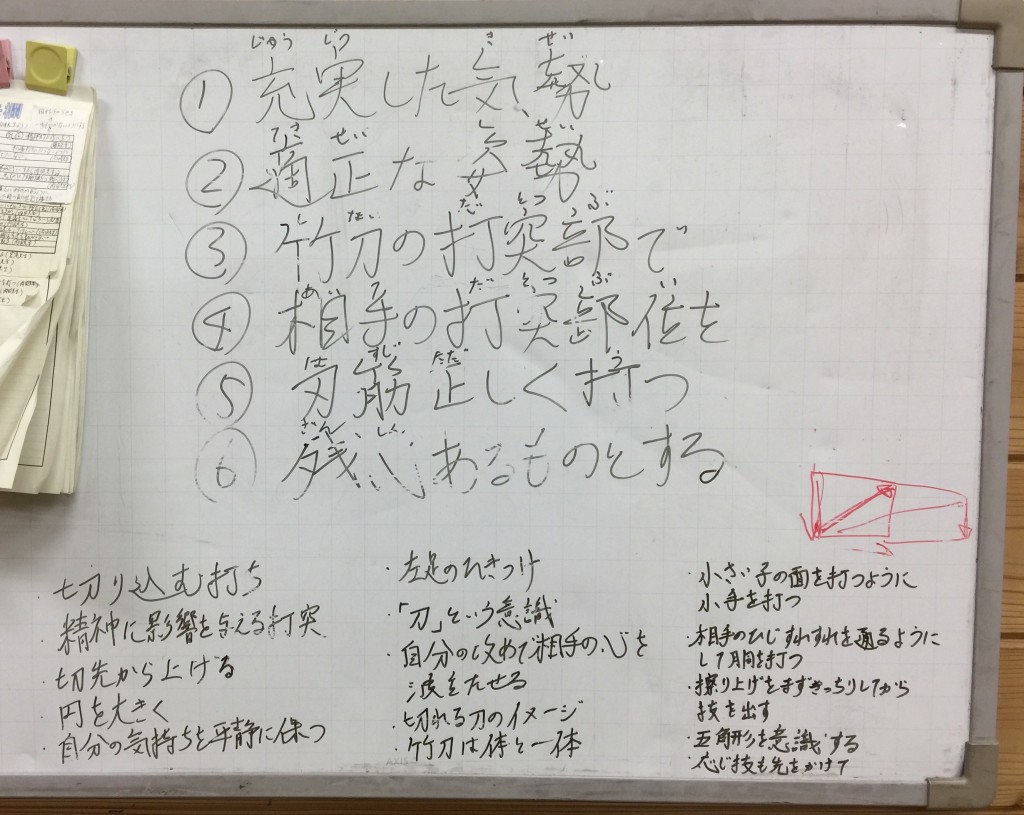 じゅう じつ き せい
① 充実した気勢
てき せい し せい
② 適正な姿勢
しない だ とつ ぶ
③ 竹刀の打突部で
あい て だ とつ ぶ い
④ 相手の打突部位を
は すじ ただ う
⑤ 刃筋正しく打つ
ざん しん
⑥ 残心あるものとする
・切り込む打ち
・精神に影響を与える打突
・切先から上げる
・円を大きく
・自分の気持ちを平静に保つ
・左足のひきつけ
・「刀」という意識
・自分の攻めで相手の心を
波をたせる
・切れる刀のイメージ
・竹刀は体と一体
・小さい子の面を打つように
小手を打つ
・相手のひじすれすれを通るように
して胴を打つ
・擦り上げをまずきっちりしてから
技を出す
・五角形を意識する
・応じ技も先をかけて